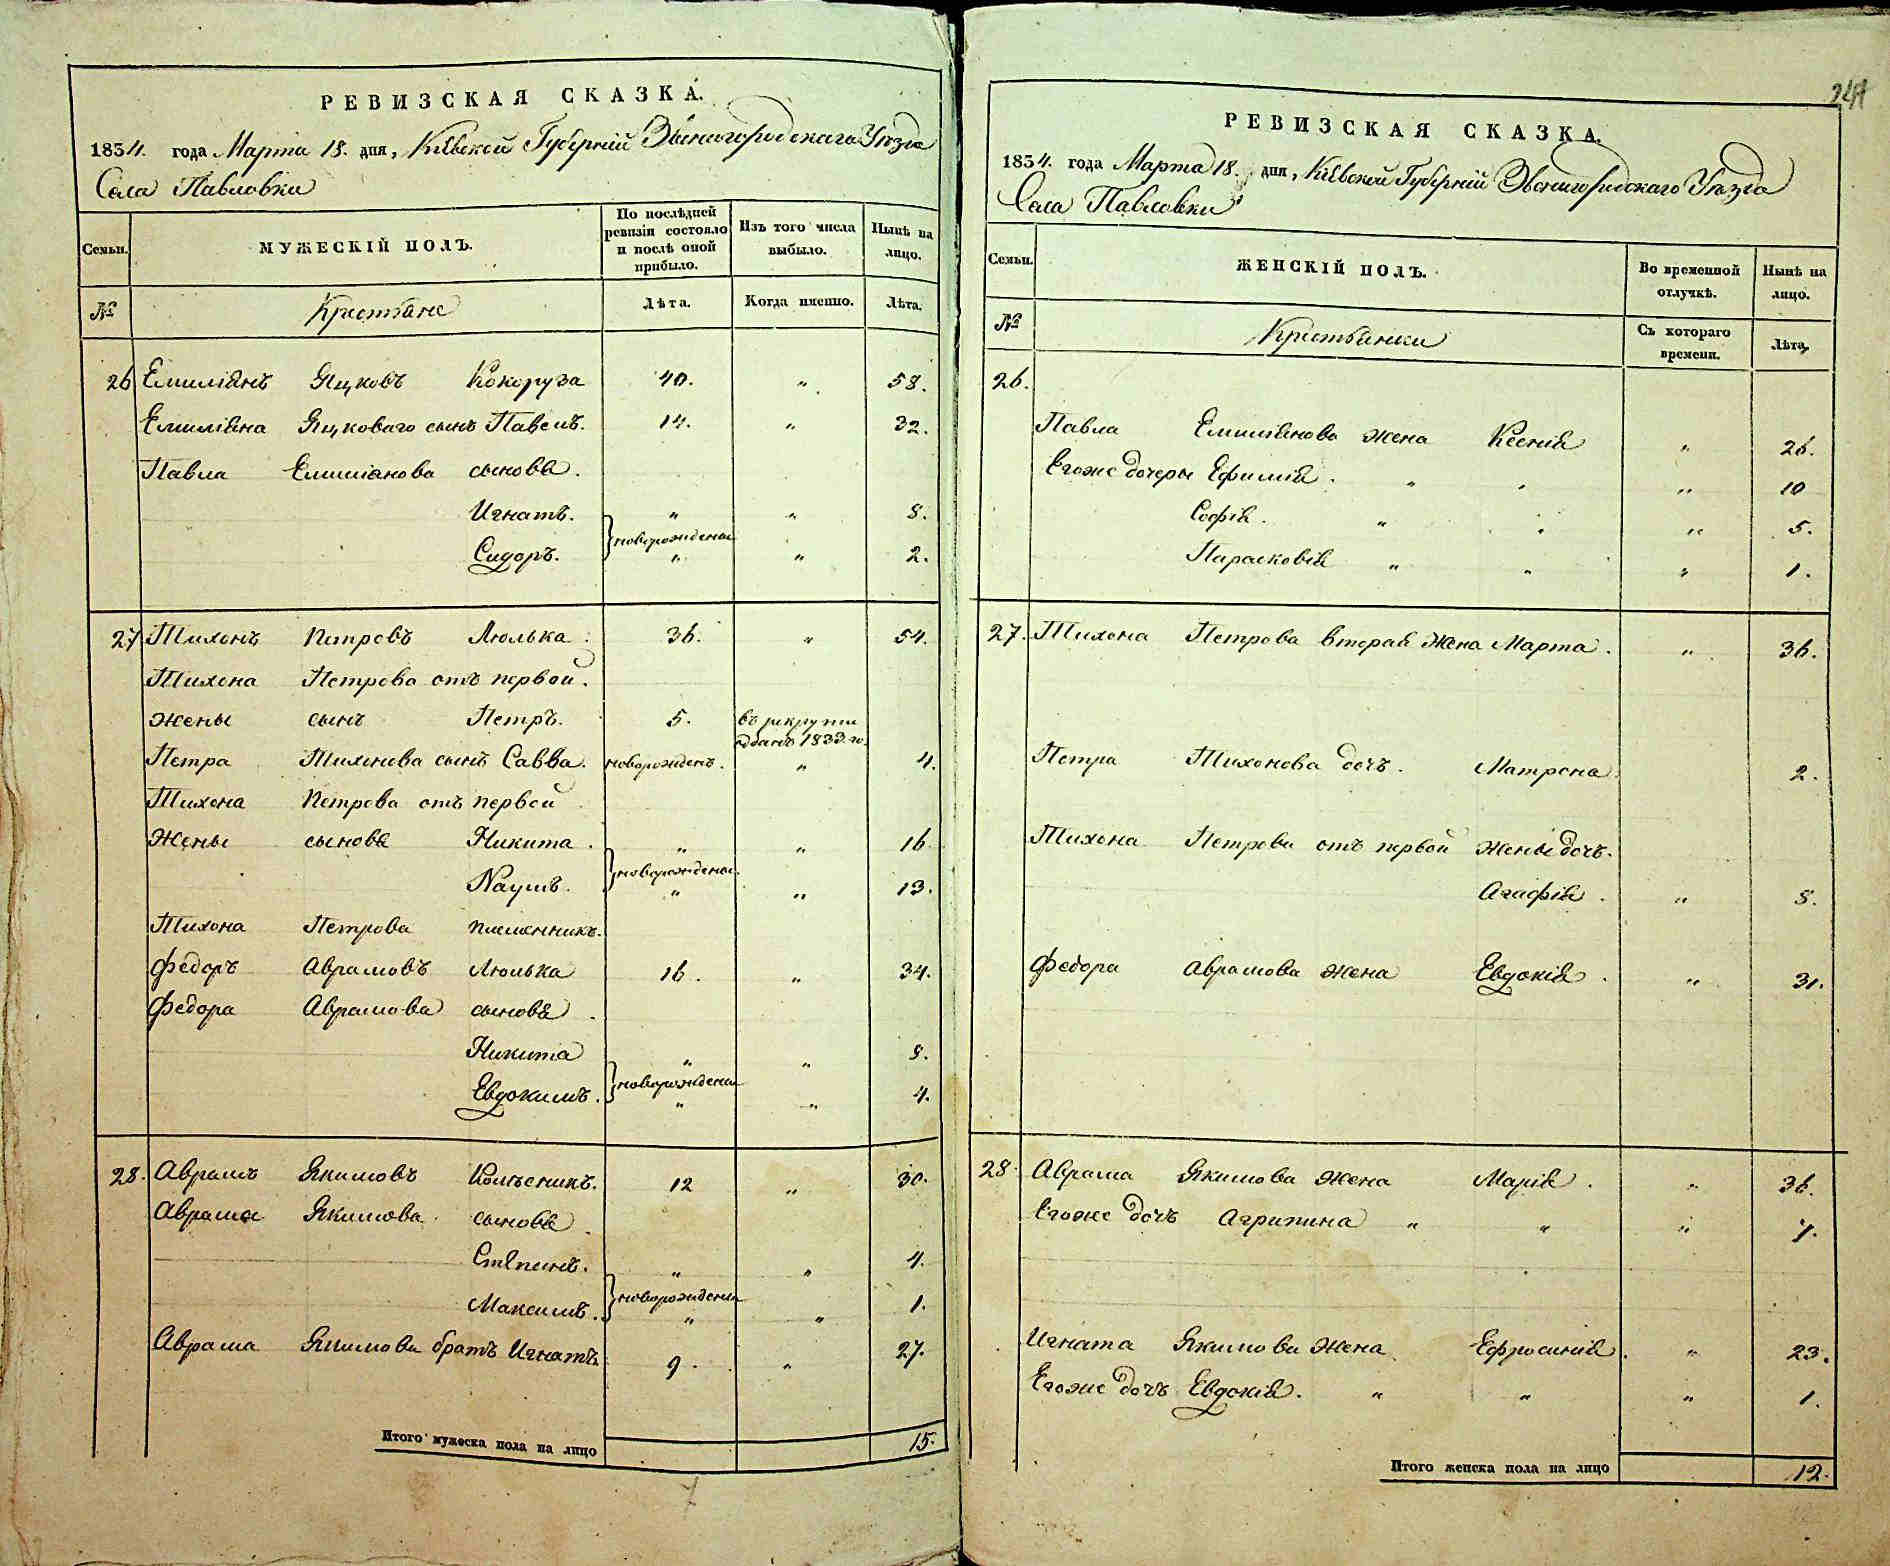 РЕВИЗСКАЯ СКАЗКА.
1834. года Марта 18. дня, Кіевской Губерніи Звенигородскаго Уѣзда
Села Павловки
Семьи.
МУЖЕСКІЙ ПОЛЪ.
По послѣдней ревизіи состояло и послѣ оной прибыло.
Изъ того числа выбыло.
Нынѣ на лицо.
№
Крестьяне
Лѣта.
Когда именно.
Лѣта.
26 Емиліянъ Яцковъ Кокоруза 40. " 58.
Емиліяна Яцковаго сынъ Павелъ. 14. " 32.
Павла Емиліянова сыновья.
Игнатъ. " " 8.
новорожденые
Сидоръ. " " 2.
27 Тихонъ Петровъ Люлька 36. " 54.
Тихона Петрова отъ первой.
жены сынъ Петръ. 5. въ рекруты
отданъ 1833 го.
Петра Тихонова сынъ Савва. новорожденъ. " 4.
Тихона Петрова отъ первой
жены сыновья Никита. " " 16
новорожденые
Наумъ. " " 13.
Тихона Петрова племенникъ.
Федоръ Аврамовъ Люлька 16. " 34.
Федора Аврамова сыновья.
Никита " " 8.
новорождены
Евдокимъ. " " 4.
28. Аврамъ Якимовъ Колѣсникъ. 12 " 30.
Аврама Якимова сыновья
Степанъ. " " 4.
новорождены
Максимъ. " " 1.
Аврама Якимова братъ Игнатъ 9. " 27.
Итого мужеска пола на лицо 15.
РЕВИЗСКАЯ СКАЗКА.
1834. года Марта 18. дня, Кіевской Губерніи Звенигородскаго Уѣзда
Села Павловки
Семьи.
ЖЕНСКІЙ ПОЛЪ.
Во временной отлучкѣ.
Нынѣ на лицо.
№
Крестьянки
Съ котораго времени.
Лѣта.
26.
Павла Емиліянова жена Ксенія " 26.
Егоже дочеры Ефимія. " " " 10
Софія. " " " 5.
Парасковія " " " 1.
27. Тихона Петрова вторая жена Марта. " 36.
Петра Тихонова дочь. Матрона 2.
Тихона Петрова отъ первой жены дочь.
Агафія. " 8.
Федора Аврамова жена Евдокія. " 31.
28. Аврама Якимова жена Марія. " 36.
Егоже дочь Агрипина " " " 7.
Игната Якимова жена Ефросинія. " 23.
Егоже дочь Евдокія. " " " 1.
Итого женска пола на лицо 12.